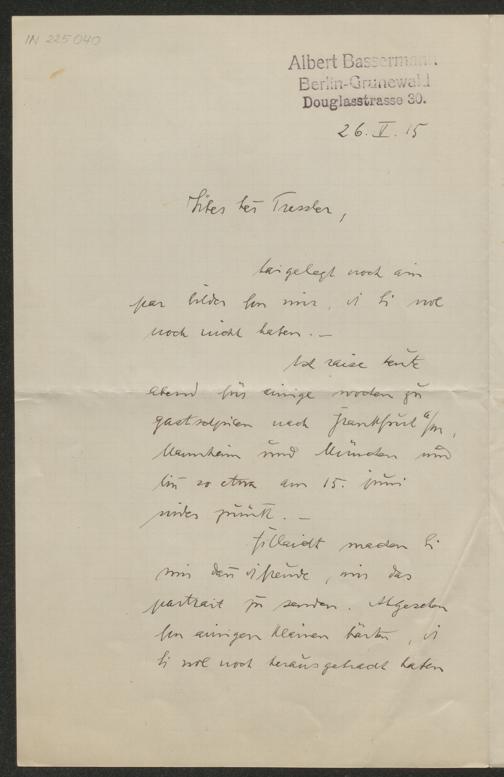 IN 225040
Albert Bassermann
Berlin-Grunewald
Douglasstrasse 30.
26. V. 15
Liber her Tressler,
baigelegt noch ain
par bilder fon mir, di Si wol
noch nicht haben. —
Ich raise heute
abend für ainige wochen zu
gastspilen nach Frankfurt a/m,
Mannheim und München und
bin so etwa am 15. juni
wider zurük. —
Fillaicht machen Si
mir dan di freude, mir das
portrait zu senden. Abgesehen
fon ainigen klainen härten, di
Si wol noch herausgebracht haben